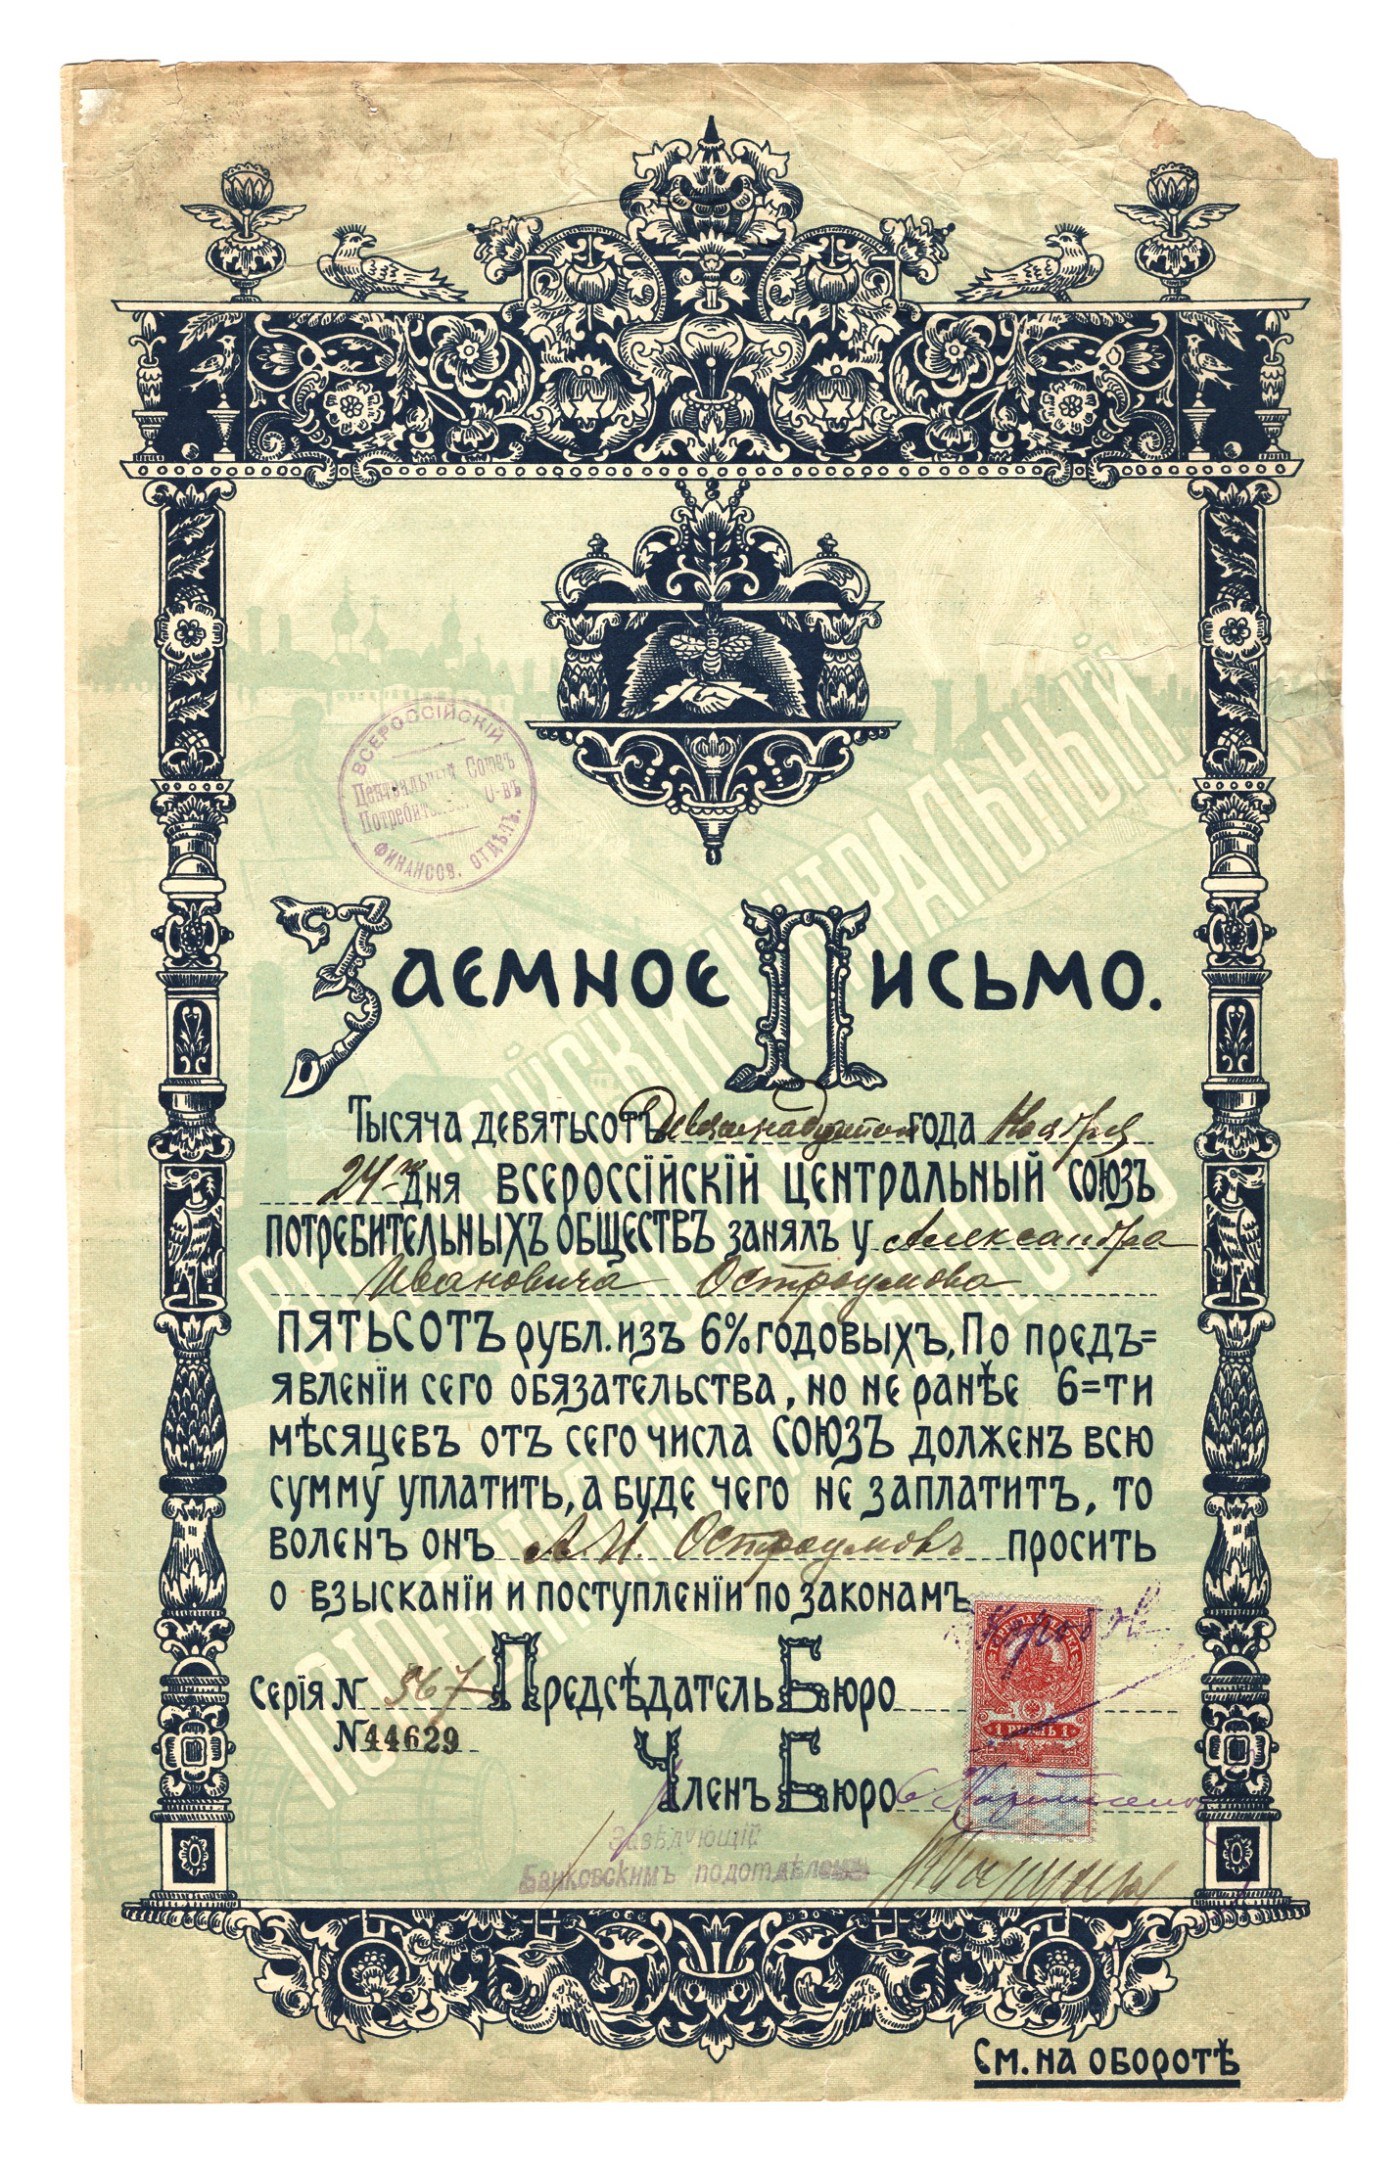 ВСЕРОССІЙСКІЙ
Центральный Союзъ
Потребит. О-въ
ФИНАНСОВ. ОТДѢЛЪ.
ВСЕРОССІЙСКІЙ ЦЕНТРАЛЬНЫЙ
СОЮЗЪ
ПОТРЕБИТЕЛЬНЫХЪ ОБЩЕСТВЪ
Заемное Письмо.
Тысяча девятьсотъ Девятнадцатого года Ноября
24го дня ВСЕРОССІЙСКІЙ ЦЕНТРАЛЬНЫЙ СОЮЗЪ
ПОТРЕБИТЕЛЬНЫХЪ ОБЩЕСТВЪ занялъ у Александра
Ивановича Остроумова
ПЯТЬСОТЪ рубл. изъ 6% годовыхъ, По предъ=
явленіи сего обязательства, но не ранѣе 6=ти
мѣсяцевъ отъ сего числа СОЮЗЪ долженъ всю
сумму уплатить, а буде чего не заплатитъ, то
воленъ онъ А. И. Остроумовъ просить
о взысканіи и поступленіи по законамъ
Серія № 567 Предсѣдатель Бюро
№ 44629
Членъ Бюро
1 РУБЛЬ 1
Завѣдующій
Банковскимъ подотдѣломъ
См. на оборотѣ